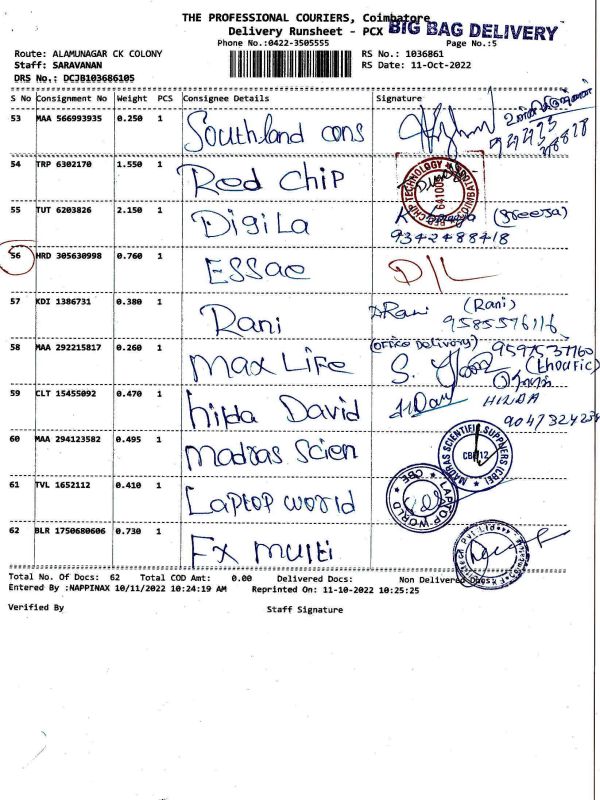 THE PROFESSIONAL COURIERS, Coimbatore
Delivery Runsheet - PCX BIG BAG DELIVERY
Phone No.:0422-3505555 Page No.:5
Route: ALAMUNAGAR CK COLONY RS No.: 1036861
Staff: SARAVANAN RS Date: 11-Oct-2022
DRS No.: DCJB103686105
S No Consignment No Weight PCS Consignee Details Signature
53 MAA 566993935 0.250 1 Southland cons
54 TRP 6302170 1.550 1 Red Chip
55 TUT 6203826 2.150 1 DigiLa (Sreeja)
9342488418
56 HRD 305630998 0.760 1 ESSae D/L
57 KDI 1386731 0.380 1 Rani Rani (Rani)
9585576116
58 MAA 292215817 0.260 1 Max Life (Office Delivery) 9597537160
(Thoufic)
59 CLT 15455092 0.470 1 hilda David HILDA
9047324234
60 MAA 294123582 0.495 1 Madras Scien MADRAS SCIENTIFIC SUPPLIERS (CBE)
61 TVL 1652112 0.410 1 Laptop world LAPTOP WORLD CBE
62 BLR 1750680606 0.730 1 Fx multi
Total No. Of Docs: 62 Total COD Amt: 0.00 Delivered Docs: Non Delivered Docs:
Entered By :NAPPINAX 10/11/2022 10:24:19 AM Reprinted On: 11-10-2022 10:25:25
Verified By Staff Signature